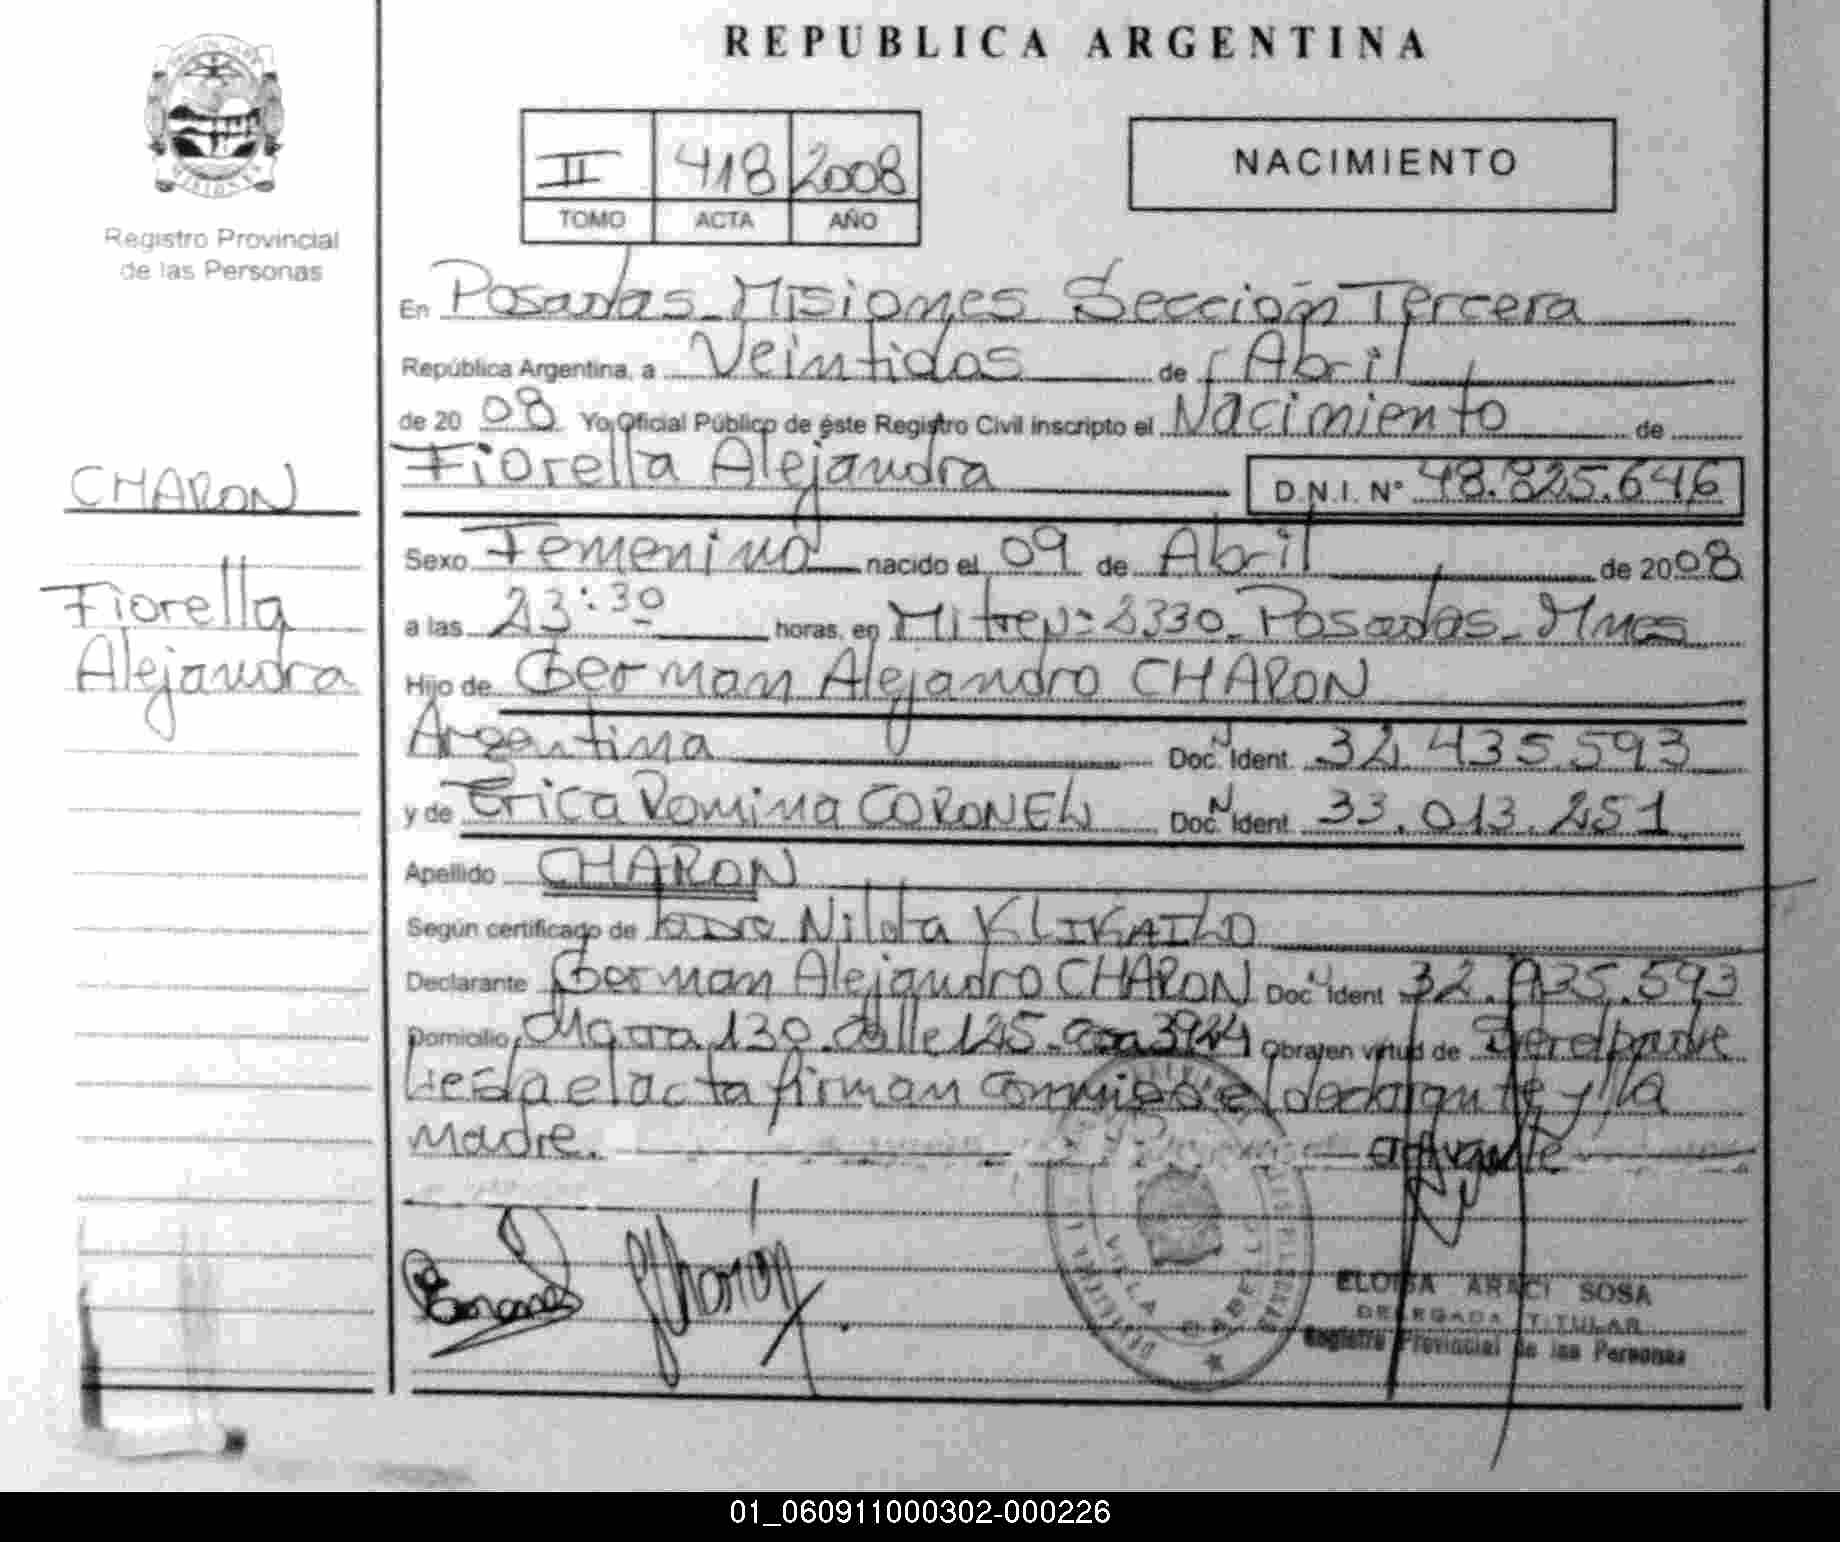 REPUBLICA ARGENTINA
II 418 2008
TOMO ACTA AÑO
NACIMIENTO
MISIONES
Registro Provincial
de las Personas
En Posadas - Misiones Sección Tercera
República Argentina, a Veintidos de Abril
de 20 08 Yo Oficial Público de éste Registro Civil inscripto el Nacimiento de
Fiorella Alejandra D.N.I. N° 48.825.646
CHARON
Fiorella
Alejandra
Sexo Femenino nacido el 09 de Abril de 2008
a las 23:30 horas, en Mitre 2330 - Posadas - Mnes
Hijo de German Alejandro CHARON
Argentina Doc. N Ident. 32.435.593
y de Erica Romina CORONEL Doc. N Ident 33.013.251
Apellido CHARON
Según certificado de Nilda
Declarante German Alejandro CHARON Doc N Ident 32.435.593
Domicilio 130 Calle 125 - Casa Obra en virtud de Ser el padre
Leida el acta firman conmigo el declarante y la
madre.
VILLA CABELLO
ELOISA ARACI SOSA
DELEGADA TITULAR
Registro Provincial de las Personas
01_060911000302-000226